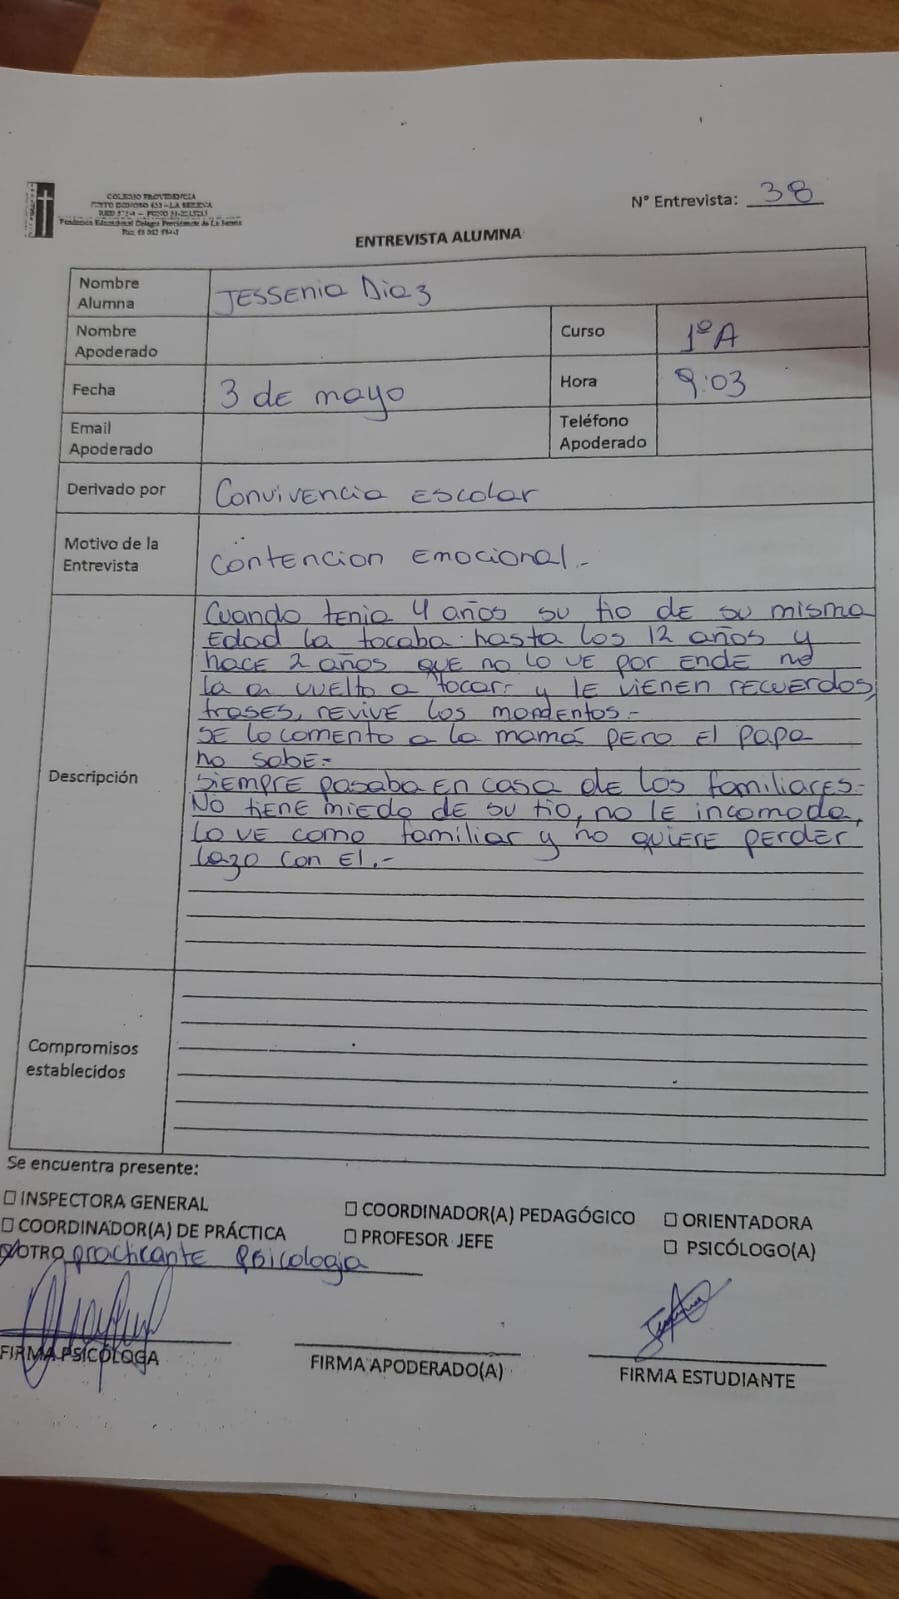 COLEGIO PROVIDENCIA
LA SERENA
N° Entrevista: 38
ENTREVISTA ALUMNA
Nombre Alumna JESSENIA Diaz
Nombre Apoderado Curso 1º A
Fecha 3 de mayo Hora 9:03
Email Apoderado Teléfono Apoderado
Derivado por Convivencia escolar
Motivo de la Entrevista contencion emocional.-
Descripción
Cuando tenia 4 años su tio de su misma
Edad la tocaba hasta los 12 años y
hace 2 años que no lo ve por ende no
la a vuelto a tocar- y le vienen recuerdos,
frases, revive los momentos.-
se lo comento a la mamá pero el papa
no sabe.-
siempre pasaba en casa de los familiares.-
No tiene miedo de su tio, no le incomoda,
lo ve como familiar y no quiere perder
lazo con el.-
Compromisos establecidos
Se encuentra presente:
☐ INSPECTORA GENERAL ☐ COORDINADOR(A) PEDAGÓGICO ☐ ORIENTADORA
☐ COORDINADOR(A) DE PRÁCTICA ☐ PROFESOR JEFE ☐ PSICÓLOGO(A)
OTRO practicante Psicologia
FIRMA PSICÓLOGA FIRMA APODERADO(A) FIRMA ESTUDIANTE